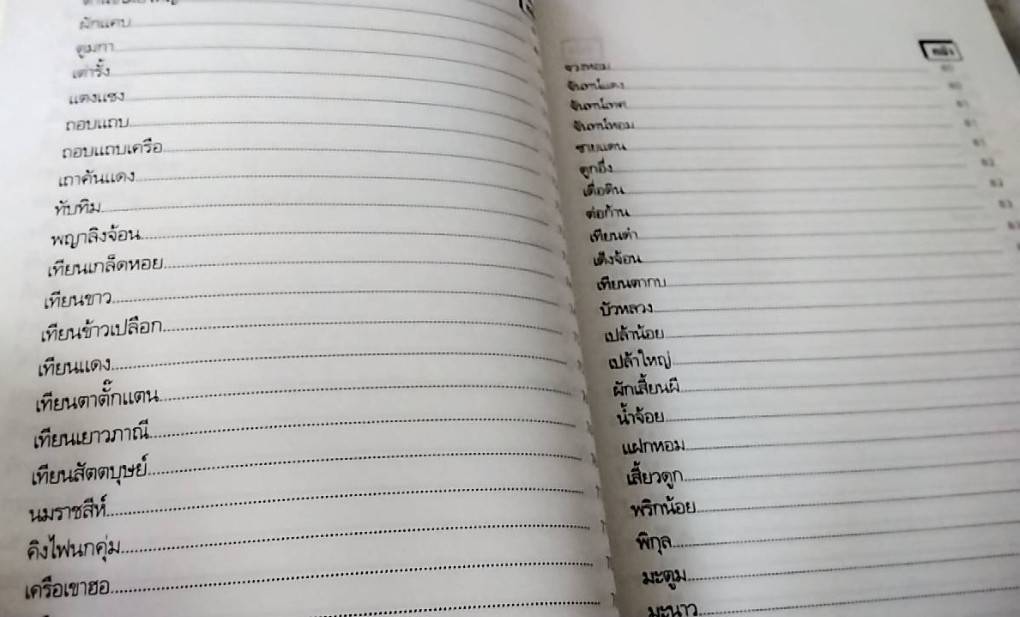 ผักแคบ
ตูมกา
เต่ารั้ง
แตงแซง
ถอบแถบ
ถอบแถบเครือ
เถาคันแดง
ทับทิม
พญาลิงจ้อน
เทียนเกล็ดหอย
เทียนขาว
เทียนข้าวเปลือก
เทียนแดง
เทียนตาตั๊กแตน
เทียนเยาวภาณี
เทียนสัตตบุษย์
นมราชสีห์
คิงไฟนกคุ่ม
เครือเขาฮอ
หน้า
จวงหอม
จันทน์แดง
จันทน์เทศ
จันทน์หอม
ชายแดน
ดูกอึ่ง
เดื่อดิน
ต่อก้าน
เทียนดำ
เดิงจ้อน
เทียนตากบ
บัวหลวง
เปล้าน้อย
เปล้าใหญ่
ผักเสี้ยนผี
น้ำจ้อย
แฝกหอม
เสี้ยวดูก
พริกน้อย
พิกุล
มะตูม
มะนาว